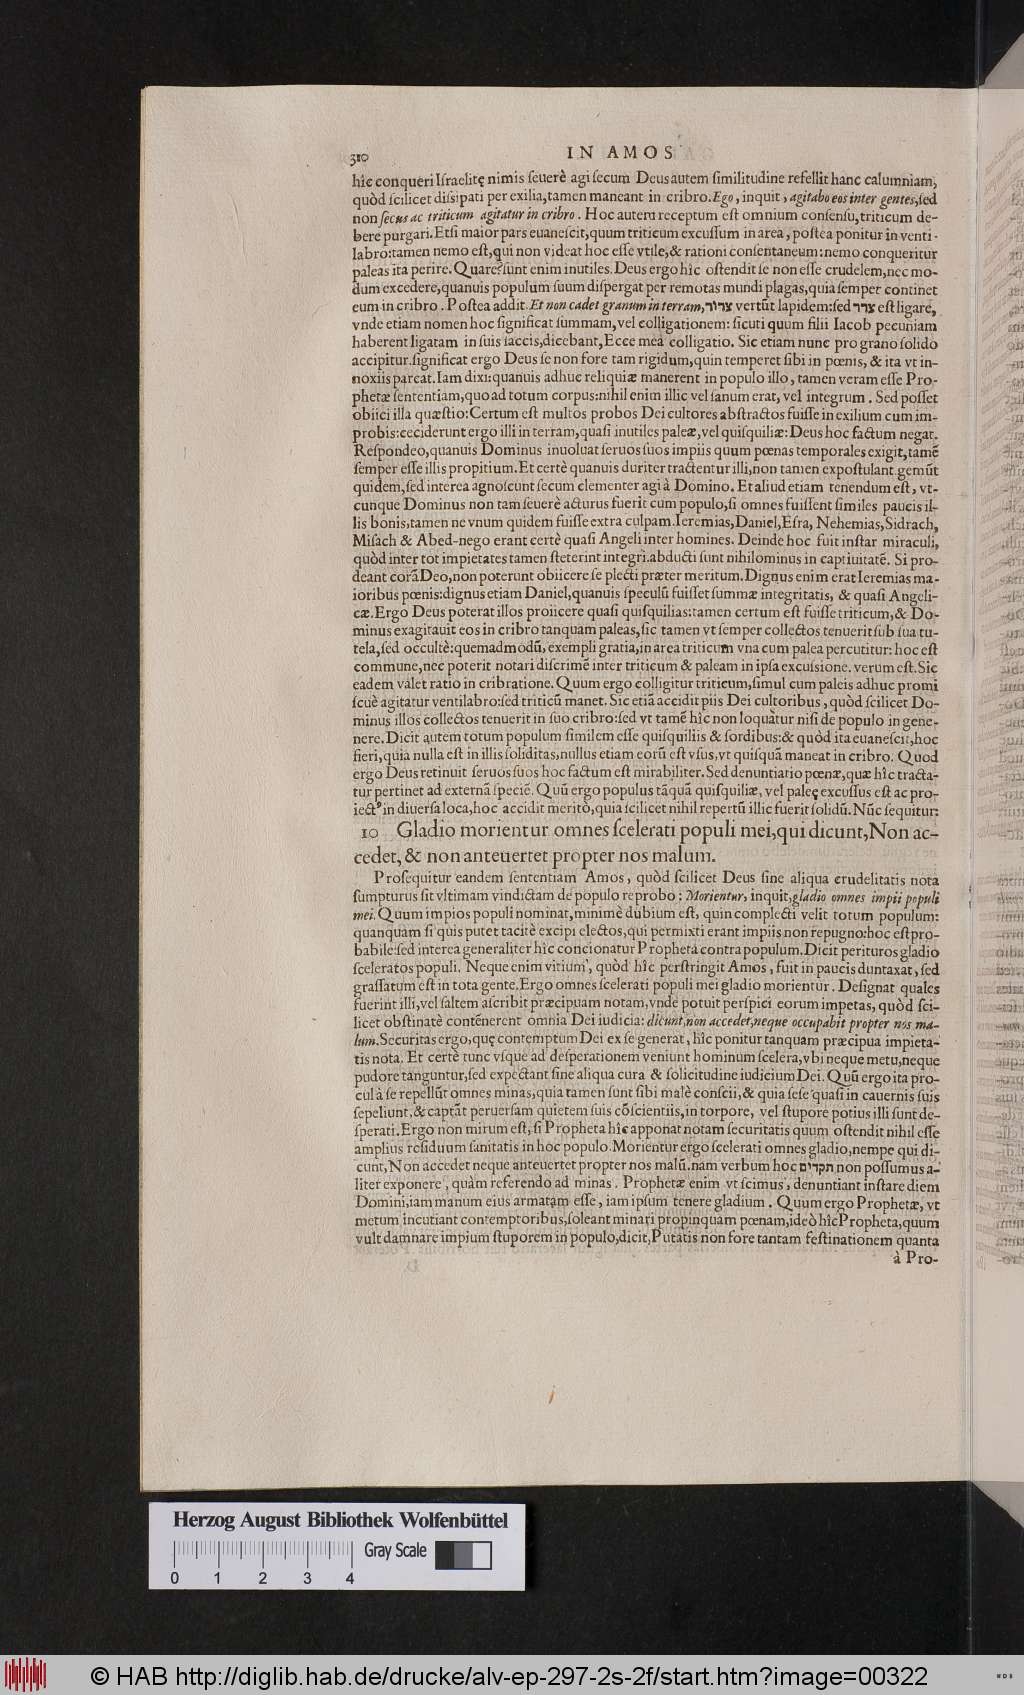 310 IN AMOS
hîc conqueri Iſraelitę nimis ſeuerè agi ſecum Deus autem ſimilitudine refellit hanc calumniam,
quòd ſcilicet diſsipati per exilia, tamen maneant in cribro. Ego, inquit, agitabo eos inter gentes, ſed
non ſecus ac triticum agitatur in cribro. Hoc autem receptum eſt omnium conſenſu, triticum de-
bere purgari. Etſi maior pars euaneſcit, quum triticum excuſſum in area, poſtea ponitur in venti-
labro: tamen nemo eſt, qui non videat hoc eſſe vtile, & rationi conſentaneum: nemo conqueritur
paleas ita perire. Quare? ſunt enim inutiles. Deus ergo hîc oſtendit ſe non eſſe crudelem, nec mo-
dum excedere, quanuis populum ſuum diſpergat per remotas mundi plagas, quia ſemper continet
eum in cribro. Poſtea addit. Et non cadet granum in terram, צרור vertūt lapidem: ſed צרר eſt ligare,
vnde etiam nomen hoc ſignificat ſummam, vel colligationem: ſicuti quum filii Iacob pecuniam
haberent ligatam in ſuis ſaccis, dicebant, Ecce mea colligatio. Sic etiam nunc pro grano ſolido
accipitur. ſignificat ergo Deus ſe non fore tam rigidum, quin temperet ſibi in pœnis, & ita vt in-
noxiis parcat. Iam dixi: quanuis adhuc reliquiæ manerent in populo illo, tamen veram eſſe Pro-
phetæ ſententiam, quo ad totum corpus: nihil enim illic vel ſanum erat, vel integrum. Sed poſſet
obiici illa quæſtio: Certum eſt multos probos Dei cultores abſtractos fuiſſe in exilium cum im-
probis: ceciderunt ergo illi in terram, quaſi inutiles paleæ, vel quiſquiliæ: Deus hoc factum negat.
Reſpondeo, quanuis Dominus inuoluat ſeruos ſuos impiis quum pœnas temporales exigit, tamē
ſemper eſſe illis propitium. Et certè quanuis duriter tractentur illi, non tamen expoſtulant. gemūt
quidem, ſed interea agnoſcunt ſecum clementer agi à Domino. Et aliud etiam tenendum eſt, vt-
cunque Dominus non tam ſeuerè acturus fuerit cum populo, ſi omnes fuiſſent ſimiles paucis il-
lis bonis, tamen ne vnum quidem fuiſſe extra culpam. Ieremias, Daniel, Eſra, Nehemias, Sidrach,
Miſach & Abed-nego erant certè quaſi Angeli inter homines. Deinde hoc fuit inſtar miraculi,
quòd inter tot impietates tamen ſteterint integri. abducti ſunt nihilominus in captiuitatē. Si pro-
deant corā Deo, non poterunt obiicere ſe plecti præter meritum. Dignus enim erat Ieremias ma-
ioribus pœnis: dignus etiam Daniel, quanuis ſpeculū fuiſſet ſummæ integritatis, & quaſi Angeli-
cæ. Ergo Deus poterat illos proiicere quaſi quiſquilias: tamen certum eſt fuiſſe triticum, & Do-
minus exagitauit eos in cribro tanquam paleas, ſic tamen vt ſemper collectos tenuerit ſub ſua tu-
tela, ſed occultè: quemadmodū, exempli gratia, in area triticum vna cum palea percutitur: hoc eſt
commune, nec poterit notari diſcrimē inter triticum & paleam in ipſa excuſsione. verum eſt. Sic
eadem valet ratio in cribratione. Quum ergo colligitur triticum, ſimul cum paleis adhuc promi
ſcuè agitatur ventilabro: ſed triticū manet. Sic etiā accidit piis Dei cultoribus, quòd ſcilicet Do-
minus illos collectos tenuerit in ſuo cribro: ſed vt tamē hîc non loquatur niſi de populo in gene-
nere. Dicit autem totum populum ſimilem eſſe quiſquiliis & ſordibus: & quòd ita euaneſcit, hoc
fieri, quia nulla eſt in illis ſoliditas, nullus etiam eorū eſt vſus, vt quiſquā maneat in cribro. Quod
ergo Deus retinuit ſeruos ſuos hoc factum eſt mirabiliter. Sed denuntiatio pœnæ, quæ hîc tracta-
tur pertinet ad externā ſpeciē. Quū ergo populus tāquā quiſquiliæ, vel paleę excuſſus eſt ac pro-
iectꝰ in diuerſa loca, hoc accidit meritò, quia ſcilicet nihil repertū illic fuerit ſolidū. Nūc ſequitur:
10 Gladio morientur omnes ſcelerati populi mei, qui dicunt, Non ac-
cedet, & non anteuertet propter nos malum.
Proſequitur eandem ſententiam Amos, quòd ſcilicet Deus ſine aliqua crudelitatis nota
ſumpturus ſit vltimam vindictam de populo reprobo: Morientur, inquit, gladio omnes impii populi
mei. Quum impios populi nominat, minimè dubium eſt, quin complecti velit totum populum:
quanquam ſi quis putet tacitè excipi electos, qui permixti erant impiis non repugno: hoc eſt pro-
babile: ſed interea generaliter hîc concionatur Propheta contra populum. Dicit perituros gladio
ſceleratos populi. Neque enim vitium, quòd hîc perſtringit Amos, fuit in paucis duntaxat, ſed
graſſatum eſt in tota gente. Ergo omnes ſcelerati populi mei gladio morientur. Deſignat quales
fuerint illi, vel ſaltem aſcribit præcipuam notam, vnde potuit perſpici eorum impetas, quòd ſci-
licet obſtinatè contēnerent omnia Dei iudicia: dicunt, non accedet, neque occupabit propter nos ma-
lum. Securitas ergo, quę contemptum Dei ex ſe generat, hîc ponitur tanquam præcipua impieta-
tis nota. Et certè tunc vſque ad deſperationem veniunt hominum ſcelera, vbi neque metu, neque
pudore tanguntur, ſed expectant ſine aliqua cura & ſolicitudine iudicium Dei. Quū ergo ita pro-
cul à ſe repellūt omnes minas, quia tamen ſunt ſibi malè conſcii, & quia ſeſe quaſi in cauernis ſuis
ſepeliunt, & captāt peruerſam quietem ſuis cōſcientiis, in torpore, vel ſtupore potius illi ſunt de-
ſperati. Ergo non mirum eſt, ſi Propheta hîc apponat notam ſecuritatis quum oſtendit nihil eſſe
amplius reſiduum ſanitatis in hoc populo. Morientur ergo ſcelerati omnes gladio, nempe qui di-
cunt, Non accedet neque anteuertet propter nos malū. nam verbum hoc תקדים non poſſumus a-
liter exponere, quàm referendo ad minas. Prophetæ enim vt ſcimus, denuntiant inſtare diem
Domini, iam manum eius armatam eſſe, iam ipſum tenere gladium. Quum ergo Prophetæ, vt
metum incutiant contemptoribus, ſoleant minari propinquam pœnam, ideò hîc Propheta, quum
vult damnare impium ſtuporem in populo, dicit, Putatis non fore tantam feſtinationem quanta
à Pro-
Herzog August Bibliothek Wolfenbüttel
Gray Scale
0 1 2 3 4
© HAB http://diglib.hab.de/drucke/alv-ep-297-2s-2f/start.htm?image=00322